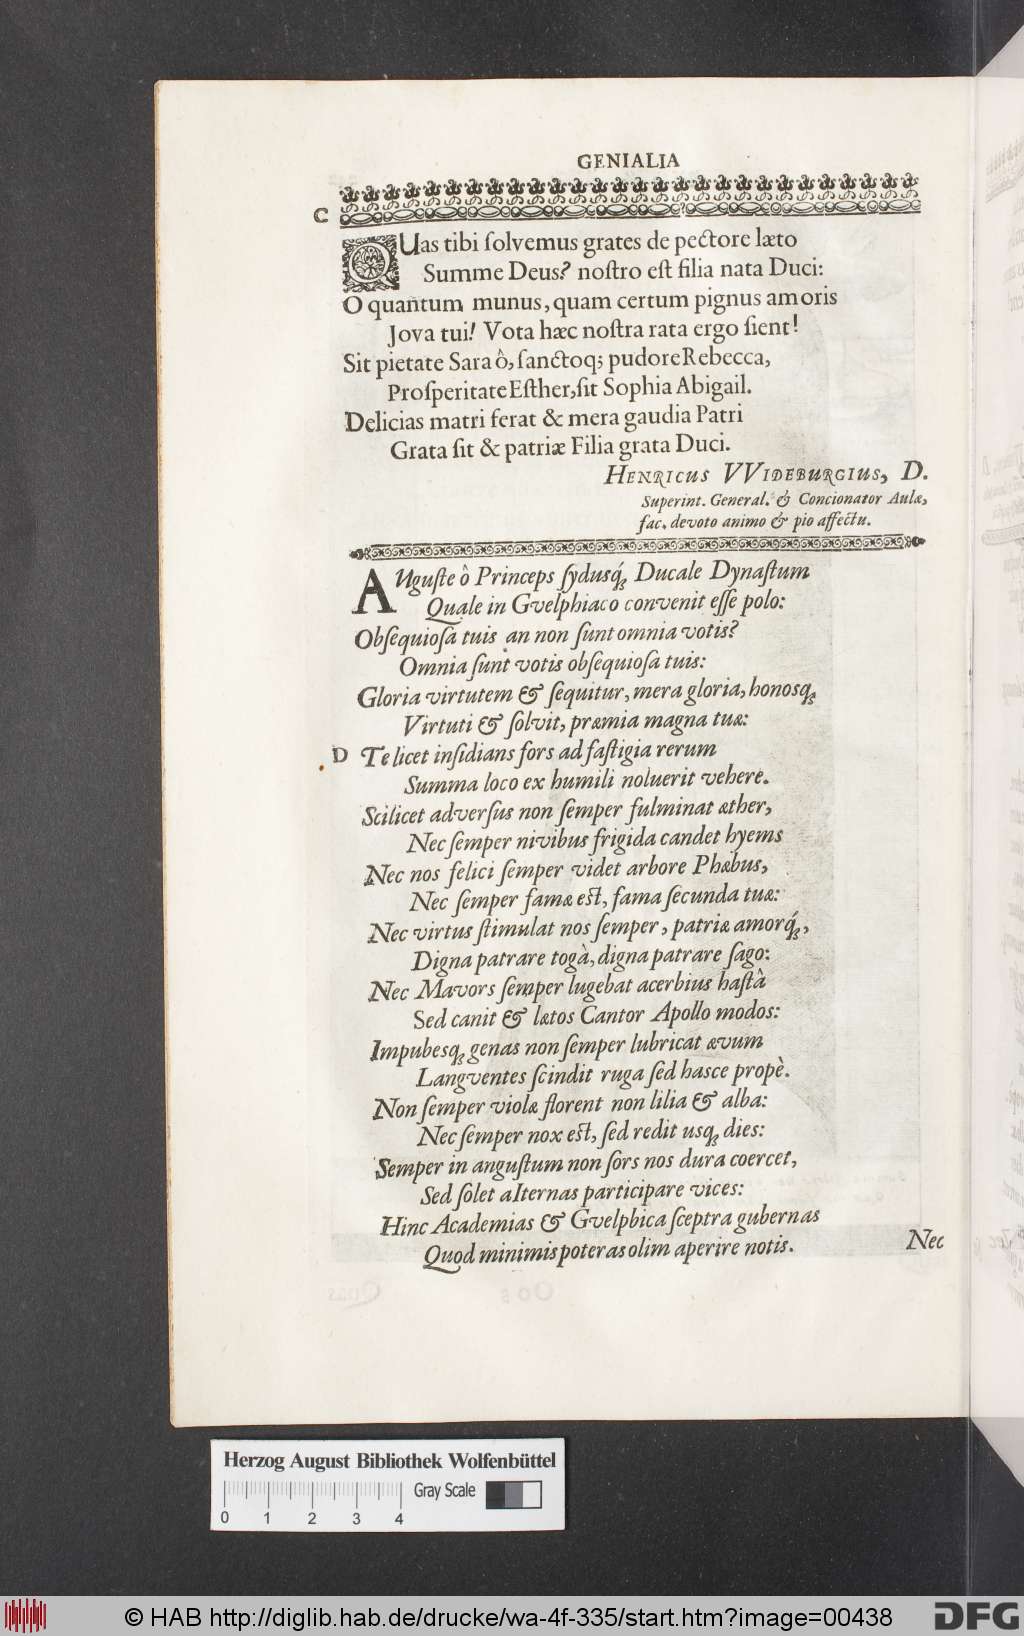 GENIALIA
C
QUas tibi ſolvemus grates de pectore læto
Summe Deus? noſtro eſt filia nata Duci:
O quantum munus, quam certum pignus amoris
Jova tui! Vota hæc noſtra rata ergo ſient!
Sit pietate Sara ô, ſanctoq; pudore Rebecca,
Proſperitate Eſther, ſit Sophia Abigail.
Delicias matri ferat & mera gaudia Patri
Grata ſit & patriæ Filia grata Duci.
HENRICUS VVIDEBURGIUS, D.
Superint. General. & Concionator Aulæ,
fac. devoto animo & pio affectu.
AUguſte ô Princeps ſydusq́; Ducale Dynaſtum
Quale in Gvelphiaco convenit eſſe polo:
Obſequioſa tuis an non ſunt omnia votis?
Omnia ſunt votis obſequioſa tuis:
Gloria virtutem & ſequitur, mera gloria, honosq;
Virtuti & ſolvit, præmia magna tuæ:
D Te licet inſidians fors ad faſtigia rerum
Summa loco ex humili noluerit vehere.
Scilicet adverſus non ſemper fulminat æther,
Nec ſemper nivibus frigida candet hyems
Nec nos felici ſemper videt arbore Phæbus,
Nec ſemper famæ eſt, fama ſecunda tuæ:
Nec virtus ſtimulat nos ſemper, patriæ amorq́;,
Digna patrare togà, digna patrare ſago:
Nec Mavors ſemper lugebat acerbius haſtâ
Sed canit & lætos Cantor Apollo modos:
Impubesq; genas non ſemper lubricat ævum
Langventes ſcindit ruga ſed hasce propè.
Non ſemper violæ florent non lilia & alba:
Nec ſemper nox eſt, ſed redit usq; dies:
Semper in anguſtum non ſors nos dura coercet,
Sed ſolet alternas participare vices:
Hinc Academias & Gvelphica ſceptra gubernas
Quod minimis poteras olim aperire notis.
Nec
Herzog August Bibliothek Wolfenbüttel
Gray Scale
0 1 2 3 4
© HAB http://diglib.hab.de/drucke/wa-4f-335/start.htm?image=00438
DFG